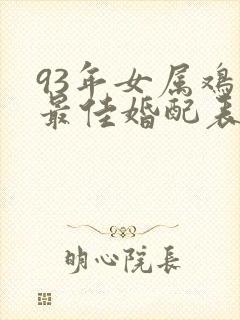 93年女属鸡
最佳婚配表
明心院長